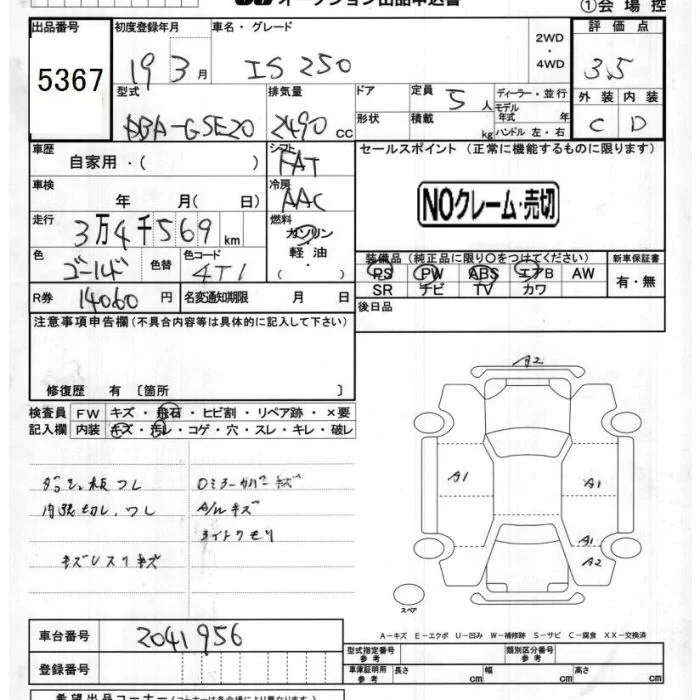 オークション出品申込書 ①会場控
出品番号 初度登録年月 車名・グレード 2WD・4WD 評価点
5367 19 3月 IS250 3.5
型式 排気量 ドア 定員 5人 ディーラー・並行 外装 内装
DBA-GSE20 2490cc 形状 積載 kg モデル年式 年式 ハンドル 左・右 C D
車歴 シフト セールスポイント(正常に機能するものに限ります)
自家用・( ) FAT
車検 冷房 NOクレーム・売切
年 月( 日) AAC
走行 燃料
3万4千569km ガソリン
軽油
色 色替 色コード ( )
ゴールド 4T1
装備品(純正品に限り○をつけてください) 新車保証書
PS PW ABS エアB AW 有・無
SR ナビ TV カワ
R券 14060円 名変通知期限 月 日 後日品
注意事項申告欄(不具合内容等は具体的に記入して下さい)
修復歴 有〔箇所 〕
検査員 FW キズ・飛石・ヒビ割・リペア跡・×要
記入欄 内装 キズ・汚レ・コゲ・穴・スレ・キレ・破レ
A2
A1 A1
A1
A2
板 つし
内張切し、つし
キズUスリキズ
ロミラーカバーキズ
A/Wキズ
ライトクモリ
スペア
A-キズ E-エクボ U-凹み W-補修跡 S-サビ C-腐食 XX-交換済
車台番号 2041956
登録番号
型式指定番号 参考 類別区分番号 参考
車庫証明用 参考 長さ cm 幅 cm 高さ cm
希望出品コーナー(コーナーは各会場により異なります)